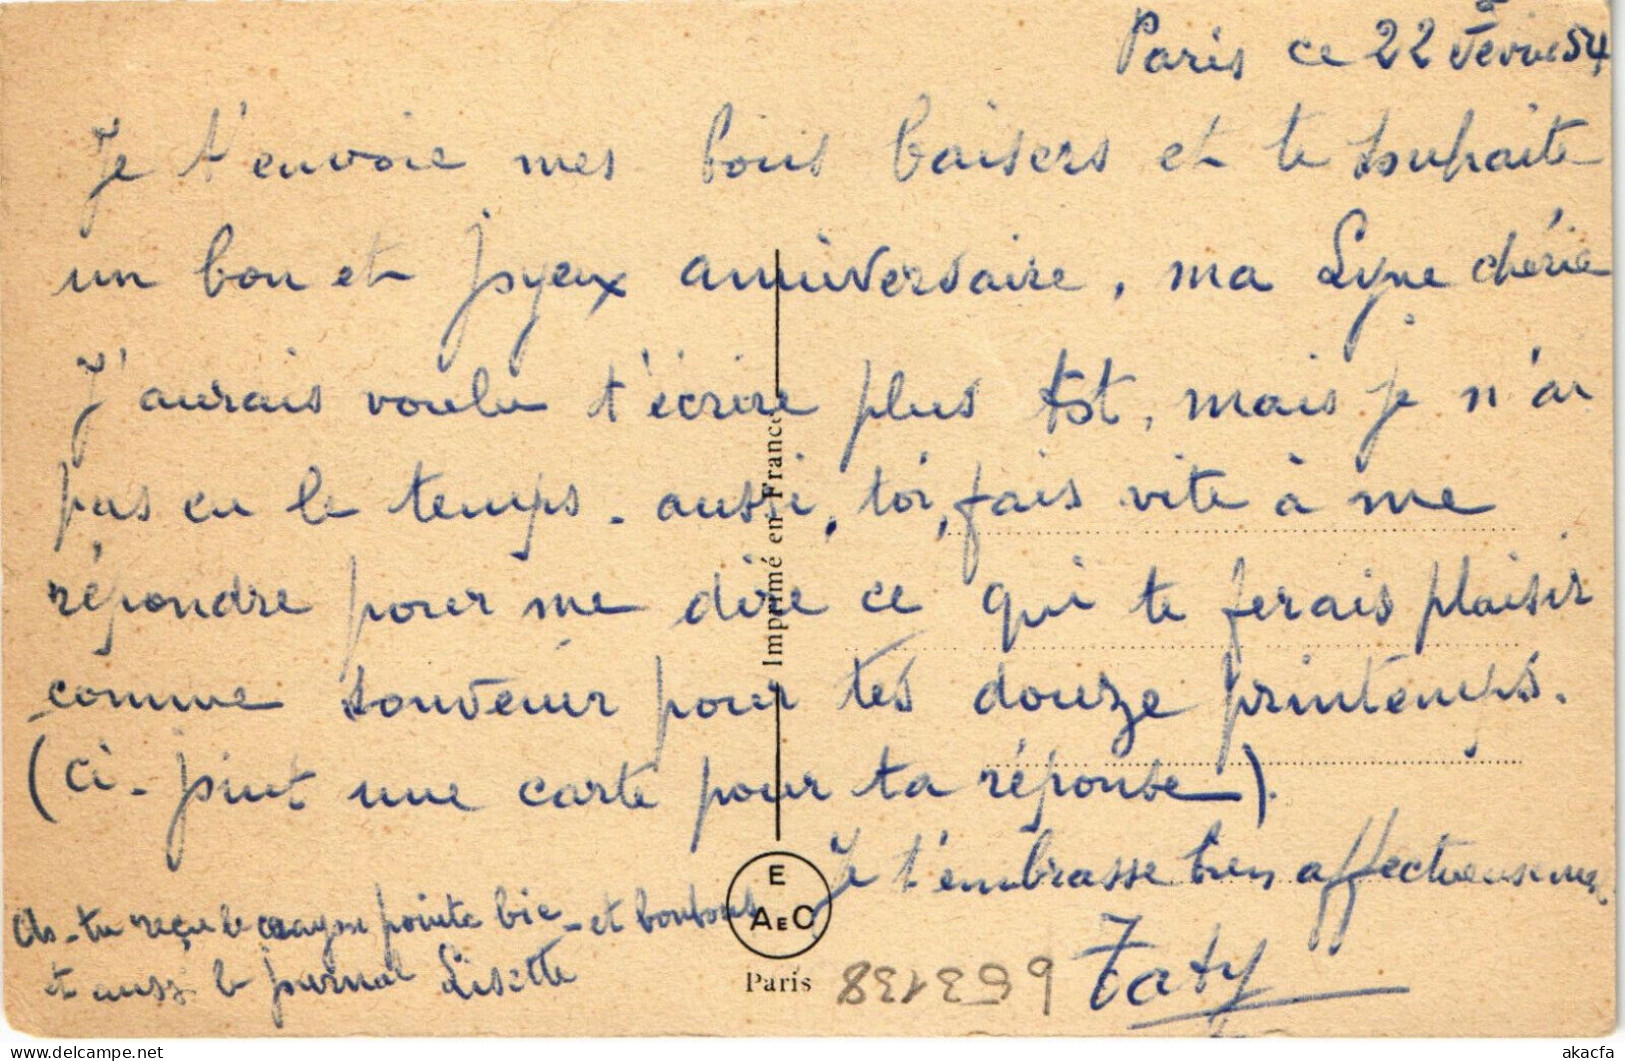 Paris ce 22 Février 54
Je t'envoie mes bons baisers et te souhaite
un bon et joyeux anniversaire, ma Lyne chérie
J'aurais voulu t'écrire plus tôt, mais je n'ai
pas eu le temps. aussi, toi, fais vite à me
répondre pour me dire ce qui te ferais plaisir
comme souvenir pour tes douze printemps.
(ci-joint une carte pour ta réponse).
Je t'embrasse bien affectueusement
Taty
As-tu reçu le crayon pointe bic - et bonbons
et aussi le journal Lisette
Imprimé en France
E
AEC
Paris
659138
akacfa